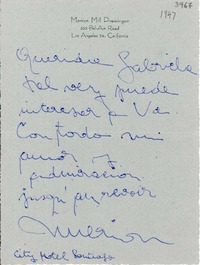 3464
1947
Marion Mill Preminger
Los Angeles 24, California
Querida Gabriela
tal vez puede
interesar a Vd.
Con todo mi
amor y
admiracion
jusqu'au revoir
Marion
City Hotel Santiago